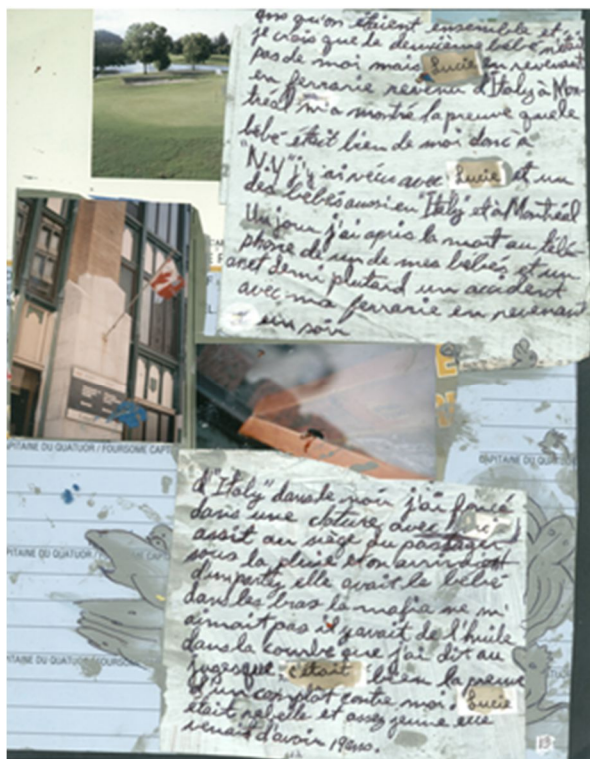 ans qu'on étaient ensemble et
je crois que le deuxième bébé
pas de moi mais Lucie en revenant
en ferrarie revenu d'Italy à Mon-
tréal m'a montré la preuve que le
bébé était bien de moi donc à
"N.Y" j'y ai vécu avec Lucie et un
des bébés aussi en "Italy" et à Montréal
Un jour j'ai apris la mort au télé-
phone de un de mes bébés et un
an et demi plutard un accident
avec ma ferrarie en revenant
un soir
CAPITAINE DU QUATUOR / FOURSOME CAPT
CAPITAINE DU QUATUOR
d'"Italy" dans le noir j'ai foncé
dans une cloture avec
assit au siège du passager
sous la pluie et on arrivait
d'un party elle avait le bébé
dans les bras la mafia ne m'
aimait pas il y avait de l'huile
dans la courbe que j'ai dit au
juges que c'était bien la preuve
d'un complot contre moi. Lucie
était belle et assez jeune elle
venait d'avoir 19ans.
CAPITAINE DU QUATUOR / FOURSOME CAPT
CAPITAINE DU QUATUOR / FOURSOME
13